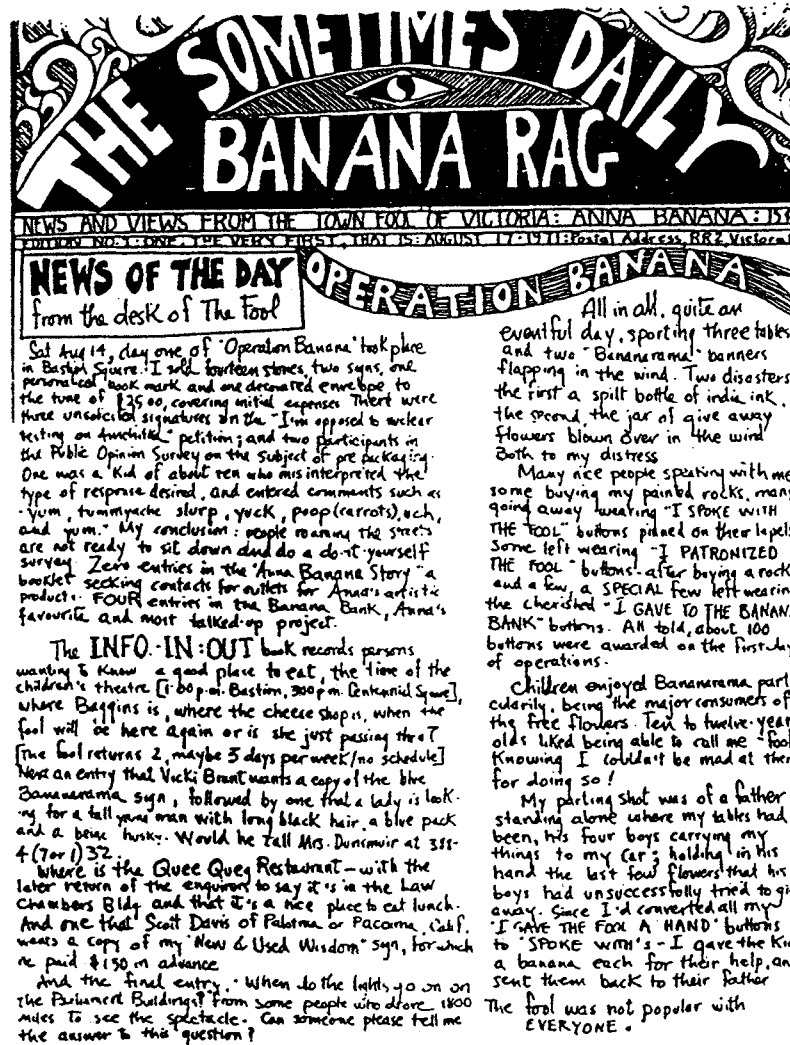 THE SOMETIMES DAILY
BANANA RAG
NEWS AND VIEWS FROM THE TOWN FOOL OF VICTORIA: ANNA BANANA: 15¢
EDITION NO. 1: ONE, THE VERY FIRST, THAT IS: AUGUST 17·1971: Postal Address, RR2 Victoria
NEWS OF THE DAY
from the desk of The Fool
OPERATION BANANA
Sat Aug 14, day one of "Operation Banana" took place
in Bastion Square. I sold fourteen stones, two signs, one
personalized book mark and one decorated envelope to
the tune of $25.00, covering initial expenses. There were
three unsolicited signatures on the "I'm opposed to nuclear
testing on Amchitka" petition; and two participants in
the Public Opinion Survey on the subject of pre packaging.
One was a kid of about ten who misinterpreted the
type of response desired, and entered comments such as
"yum, tummyache slurp, yuck, poop (carrots), och,
and yum." My conclusion: people roaming the streets
are not ready to sit down and do a do-it-yourself
survey. Zero entries in the "Anna Banana Story" a
booklet seeking contacts for outlets for Anna's artistic
products. FOUR entries in the Banana Bank, Anna's
favourite and most talked-up project.
The INFO.-IN:OUT book records persons
wanting to know a good place to eat, the time of the
children's theatre [1:00 p.m. Bastion, 3:00 p.m. Centennial Square],
where Baggins is, where the cheese shop is, when the
fool will be here again or is she just passing thro?
[The fool returns 2, maybe 3 days per week/no schedule]
Next an entry that Vicki Brant wants a copy of the blue
Bananarama sign, followed by one that a lady is look-
ing for a tall young man with long black hair, a blue pack
and a beige husky. Would he call Mrs. Dunsmuir at 388-
4(7 or 1)32.
Where is the Quee Queg Restaurant - with the
later return of the enquirer to say it's in the Law
Chambers Bldg and that it's a nice place to eat lunch.
And one that Scott Davis of Paloma or Pacoima, Calif.
wants a copy of my "New & Used Wisdom" sign, for which
he paid $1.50 in advance
And the final entry, "When do the lights go on on
the Parliament Buildings?" from some people who drove 1800
miles to see the spectacle. Can someone please tell me
the answer to this question?
All in all, quite an
eventful day, sporting three tables
and two "Bananarama" banners
flapping in the wind. Two disasters
the first a spilt bottle of india ink,
the second, the jar of give away
flowers blown over in the wind
Both to my distress
Many nice people speaking with me
some buying my painted rocks, many
going away wearing "I SPOKE WITH
THE FOOL" buttons pinned on their lapels
Some left wearing "I PATRONIZED
THE FOOL" buttons - after buying a rock
and a few, a SPECIAL few left wearin
the cherished "I GAVE TO THE BANAN
BANK" buttons. All told, about 100
buttons were awarded on the first day
of operations.
Children enjoyed Bananarama part
cularily, being the major consumers of
the free flowers. Ten to twelve-year
olds liked being able to call me "fool
Knowing I couldn't be mad at them
for doing so!
My parting shot was of a father
standing alone where my tables had
been, his four boys carrying my
things to my car; holding in his
hand the last few flowers that his
boys had unsuccessfully tried to gi
away. Since I'd converted all my
"I GAVE THE FOOL A HAND" buttons
to "SPOKE WITH's - I gave the Ki
a banana each for their help, an
sent them back to their father
The fool was not popular with
EVERYONE.